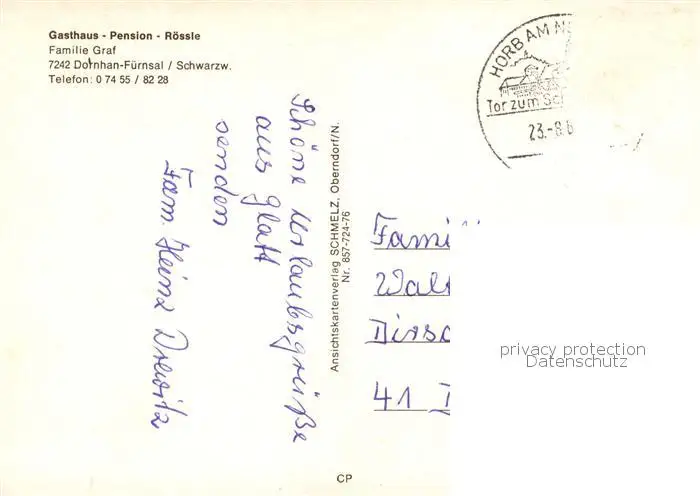 Gasthaus - Pension - Rössle
Familie Graf
7242 Dornhan-Fürnsal / Schwarzw.
Telefon: 0 74 55 / 82 28
Schöne Urlaubsgrüße
aus Glatt
senden
Fam. Heinz Drewitz
Ansichtskartenverlag SCHMELZ, Oberndorf/N.
Nr. 857-724-76
HORB AM N
Tor zum Sc
23.-8.8
Famil
Walt
Dirsc
41 D
privacy protection
Datenschutz
CP